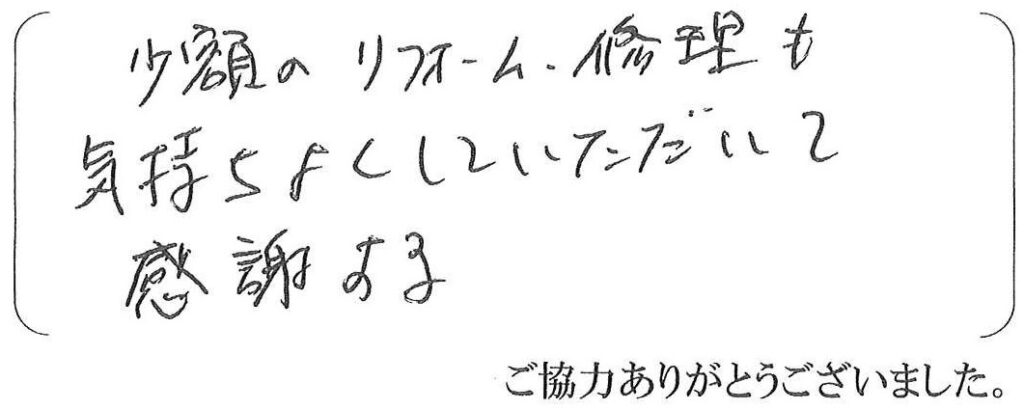 少額のリフォーム・修理も
気持ちよくしていただいて
感謝する
ご協力ありがとうございました。